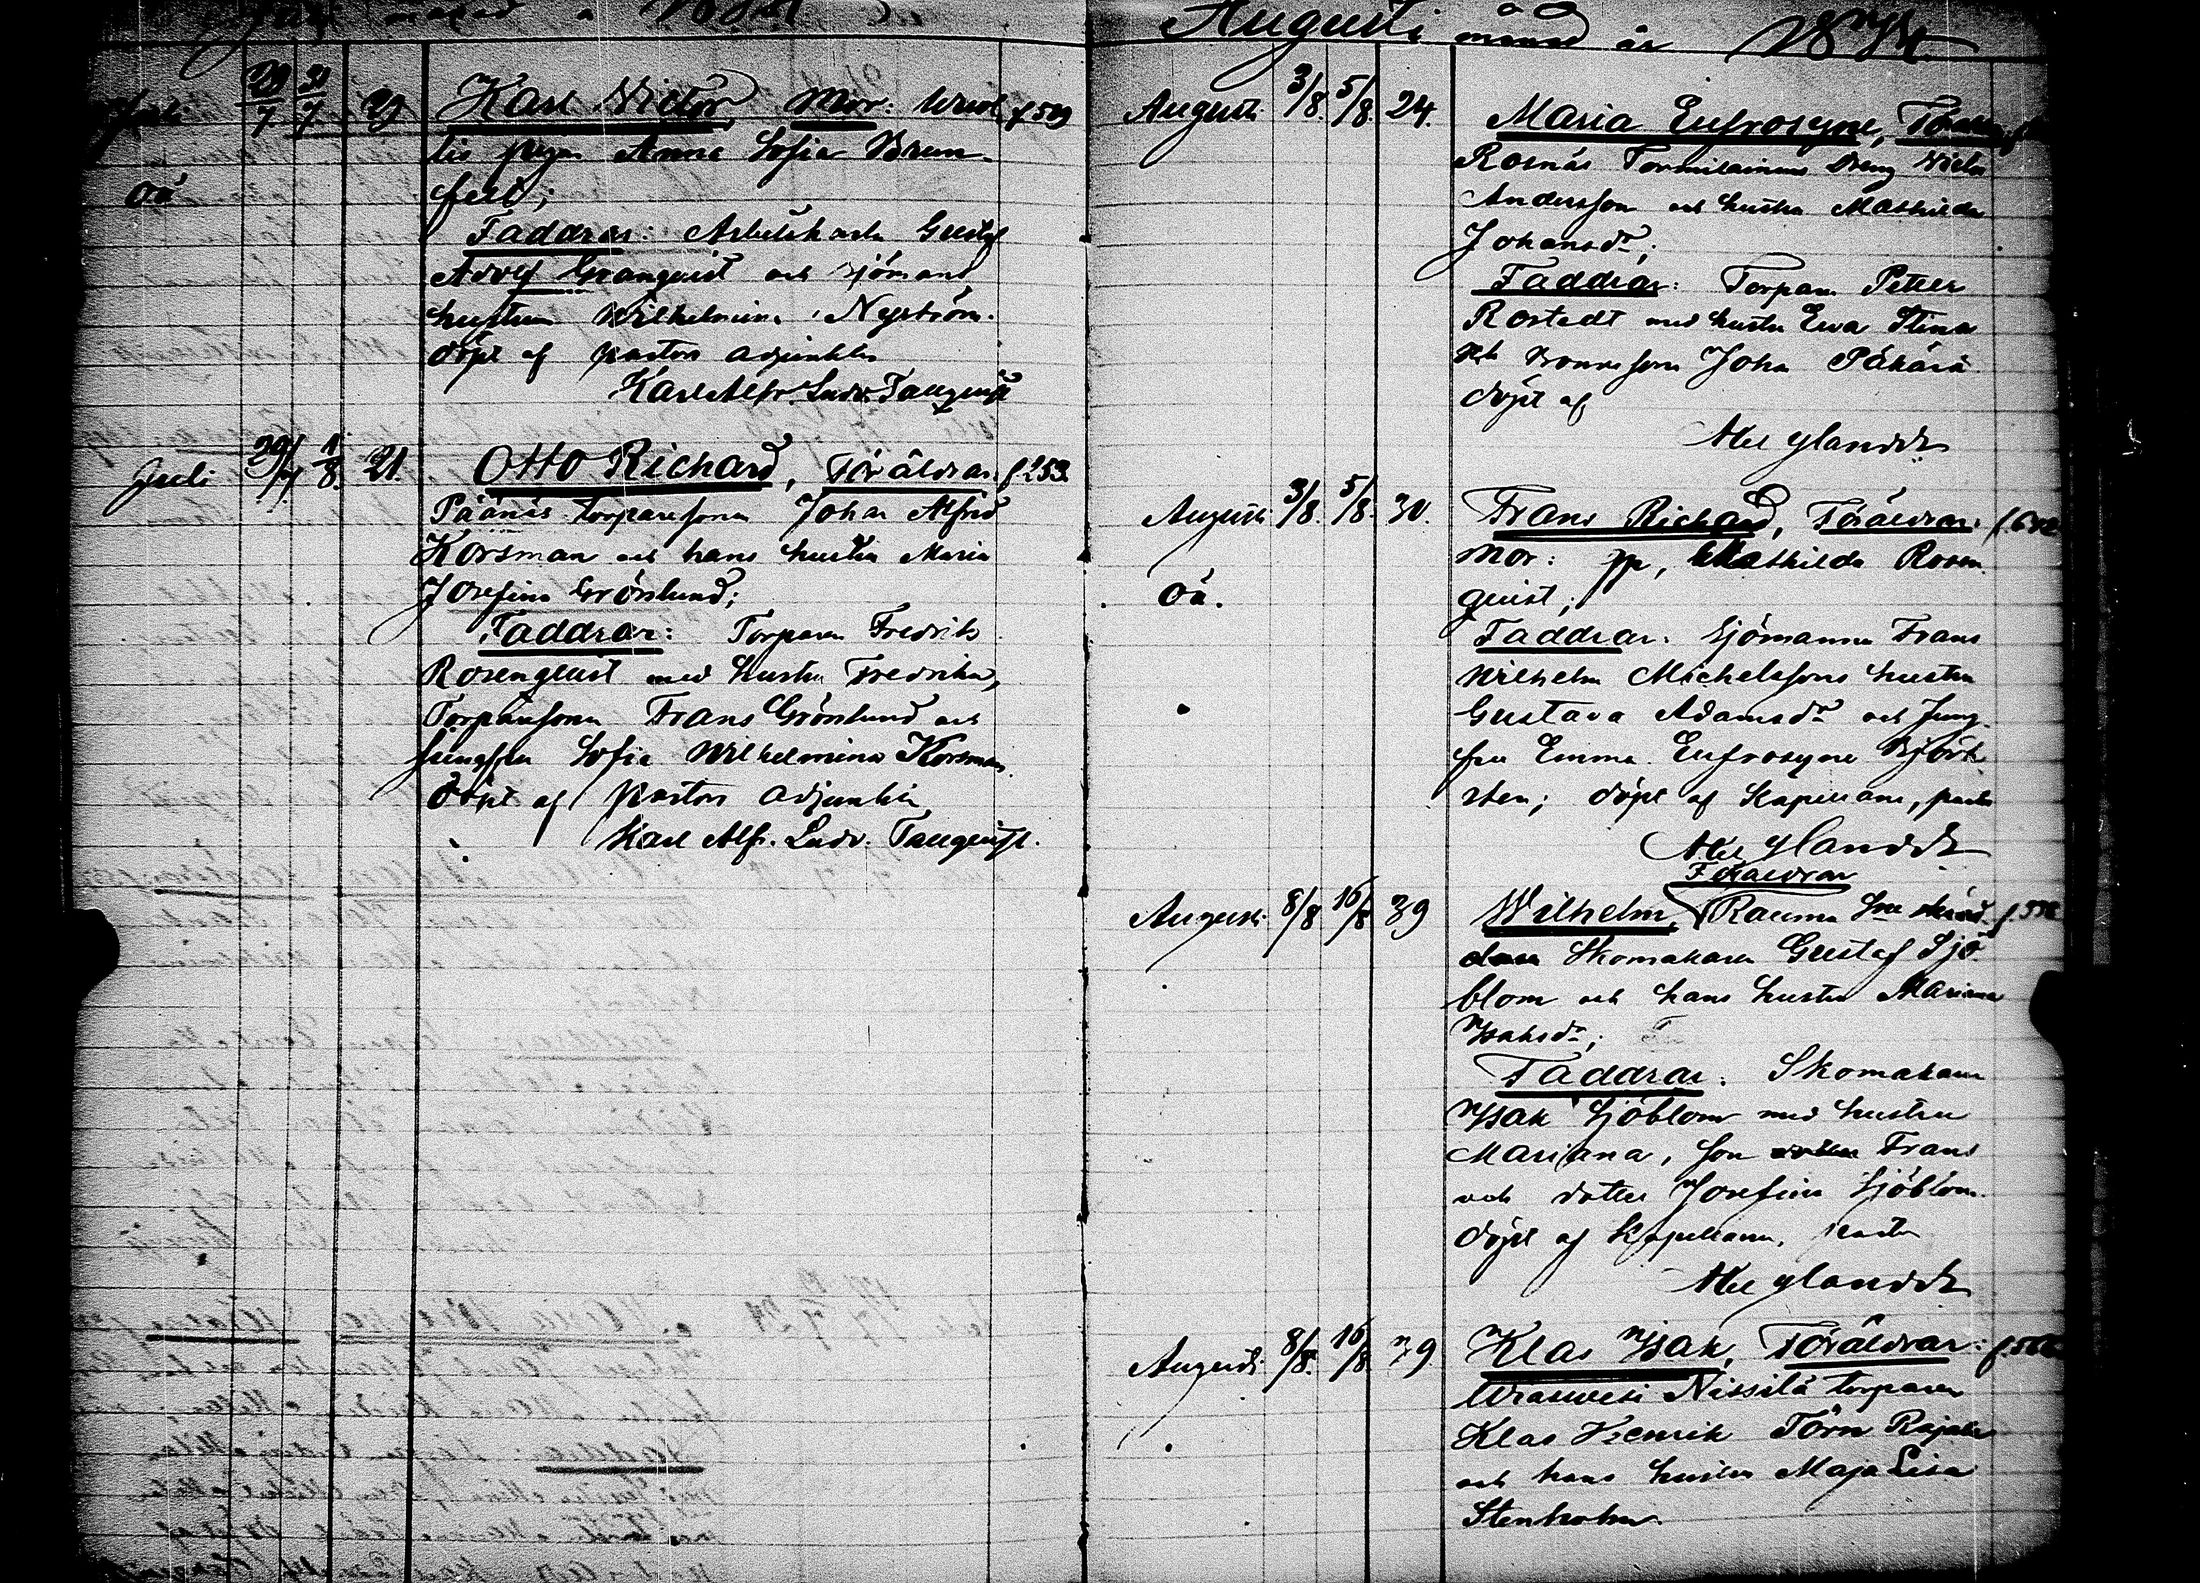 Juli månad
Juli 29/7 31/7 29 Karl Victor, Mor: f 519
pigan Anna Sofia Brun-
oä felt;
Faddrar: Arbetskarln Gustaf
Adolf Granquist och sjömans
hustrun Wilhelmina Nyström.
döpt af pastors adjunkten
Karl Alfr. Ludv. Tallquist
Juli 30/7 1/8 21. Otto Richard, Föräldrar: f 253
Päänäs torparesonen Johan Alfred
Korsman och hans hustru Maria
Josefina Grönlund;
Faddrar: Torparen Fredrik
Rosenquist med hustru Fredrika,
Torparesonen Frans Grönlund och
jungfru Sofia Wilhelmina Korsman.
döpt af pastors adjunkten
Karl Alfr. Ludv. Tallquist.
Augusti månad år 1874
Augusti 3/8. 5/8. 24. Maria Eufrosyne,
Rosnäs dreng
Andersson och hustru Mathilda
Johansdr;
Faddrar: Torparen Petter
Rostedt med hustru Eva Stina
och bondeson John
döpt af
Abel Ylander
Augusti 3/8. 5/8. 30. Frans Richard, Föräldrar: f. 642
Mor: pp, Mathilda Rosen-
oä. quist;
Faddrar: Sjömannen Frans
Wilhelm Michelssons hustru
Gustava Adamsdr och Jung-
fru Emma Eufrosyne Björk-
sten; döpt af Kapellanen, pastor
Abel Ylander
Föräldrar
Augusti 8/8 16/8 39 Wilhelm, Rauma
Skomakaren Gustaf Sjö-
blom och hans hustru Mariana
Isaksdr;
Faddrar: Skomakaren
Isak Sjöblom med hustru
Mariana, son Frans
och dotter Josefina Sjöblom.
döpt af Kapellanen, pastor
Abel Ylander
Augusti 8/8. 16/8 39 Klas Isak, Föräldrar:
Nissilä torparen
Klas Henrik Törn Rajala
och hans hustru Maja Lisa
Stenholm.